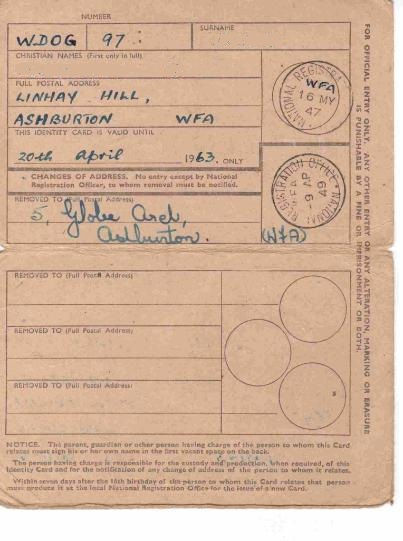 NUMBER
SURNAME
WDOG 97 :
CHRISTIAN NAMES (First only in full)
FULL POSTAL ADDRESS
LINHAY HILL,
ASHBURTON WFA
THIS IDENTITY CARD IS VALID UNTIL
20th April 1963. ONLY
CHANGES OF ADDRESS. No entry except by National
Registration Officer, to whom removal must be notified.
REMOVED TO (Full Postal Address)
5, Globe Arch,
Ashburton. (WFA)
NATIONAL REGISTRATION
WFA
16 MY
47
NATIONAL REGISTRATION OFFICE
49
FOR OFFICIAL ENTRY ONLY. ANY OTHER ENTRY OR ANY ALTERATION, MARKING OR ERASURE
IS PUNISHABLE BY A FINE OR IMPRISONMENT OR BOTH.
REMOVED TO (Full Postal Address)
REMOVED TO (Full Postal Address)
REMOVED TO (Full Postal Address)
NOTICE. The parent, guardian or other person having charge of the person to whom this Card
relates must sign his or her own name in the first vacant space on the back.
The person having charge is responsible for the custody and production, when required, of this
Identity Card and for the notification of any change of address of the person to whom it relates.
Within seven days after the 16th birthday of the person to whom this Card relates that person
must produce it at the local National Registration Office for the issue of a new Card.